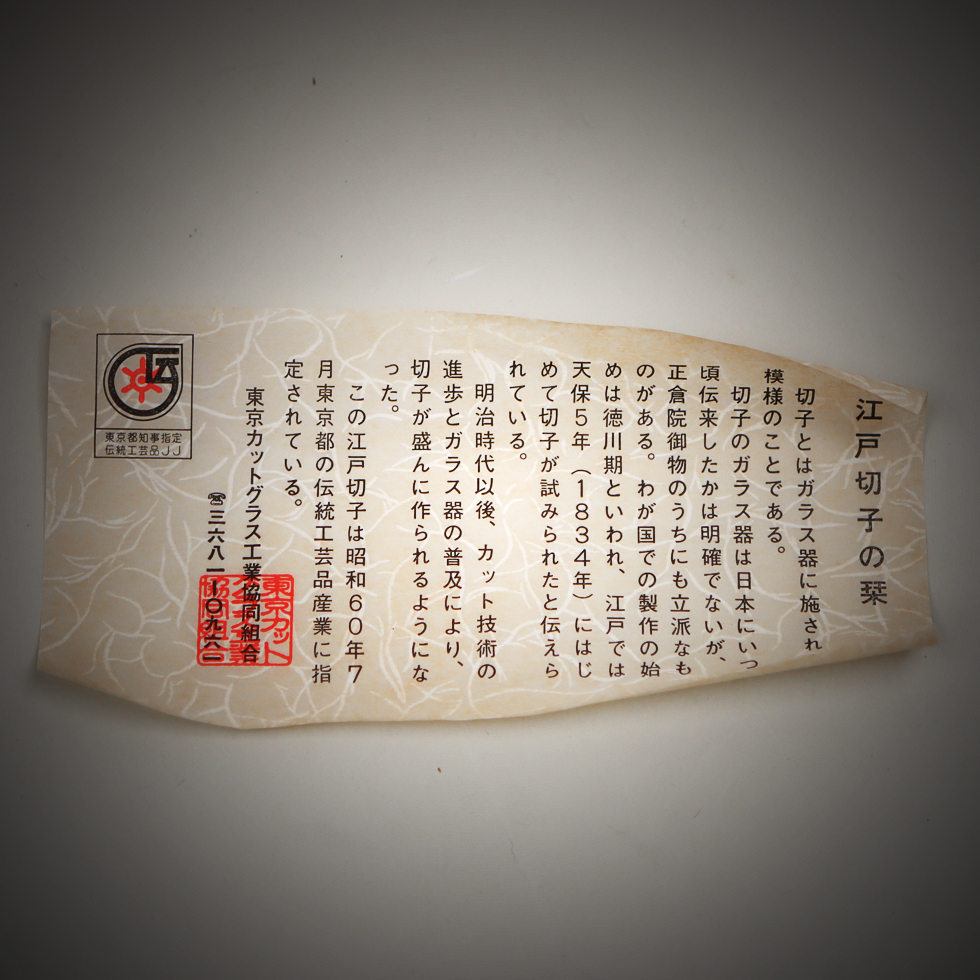 江戸切子の栞
切子とはガラス器に施され
模様のことである。
切子のガラス器は日本にいつ
頃伝来したかは明確でないが、
正倉院御物のうちにも立派なも
のがある。わが国での製作の始
めは徳川期といわれ、江戸では
天保5年(1834年)にはじ
めて切子が試みられたと伝えら
れている。
明治時代以後、カット技術の
進歩とガラス器の普及により、
切子が盛んに作られるようにな
った。
この江戸切子は昭和60年7
月東京都の伝統工芸品産業に指
定されている。
東京カットグラス工業協同組合
☎三六八一ー〇九六一
東京都知事指定
伝統工芸品JJ